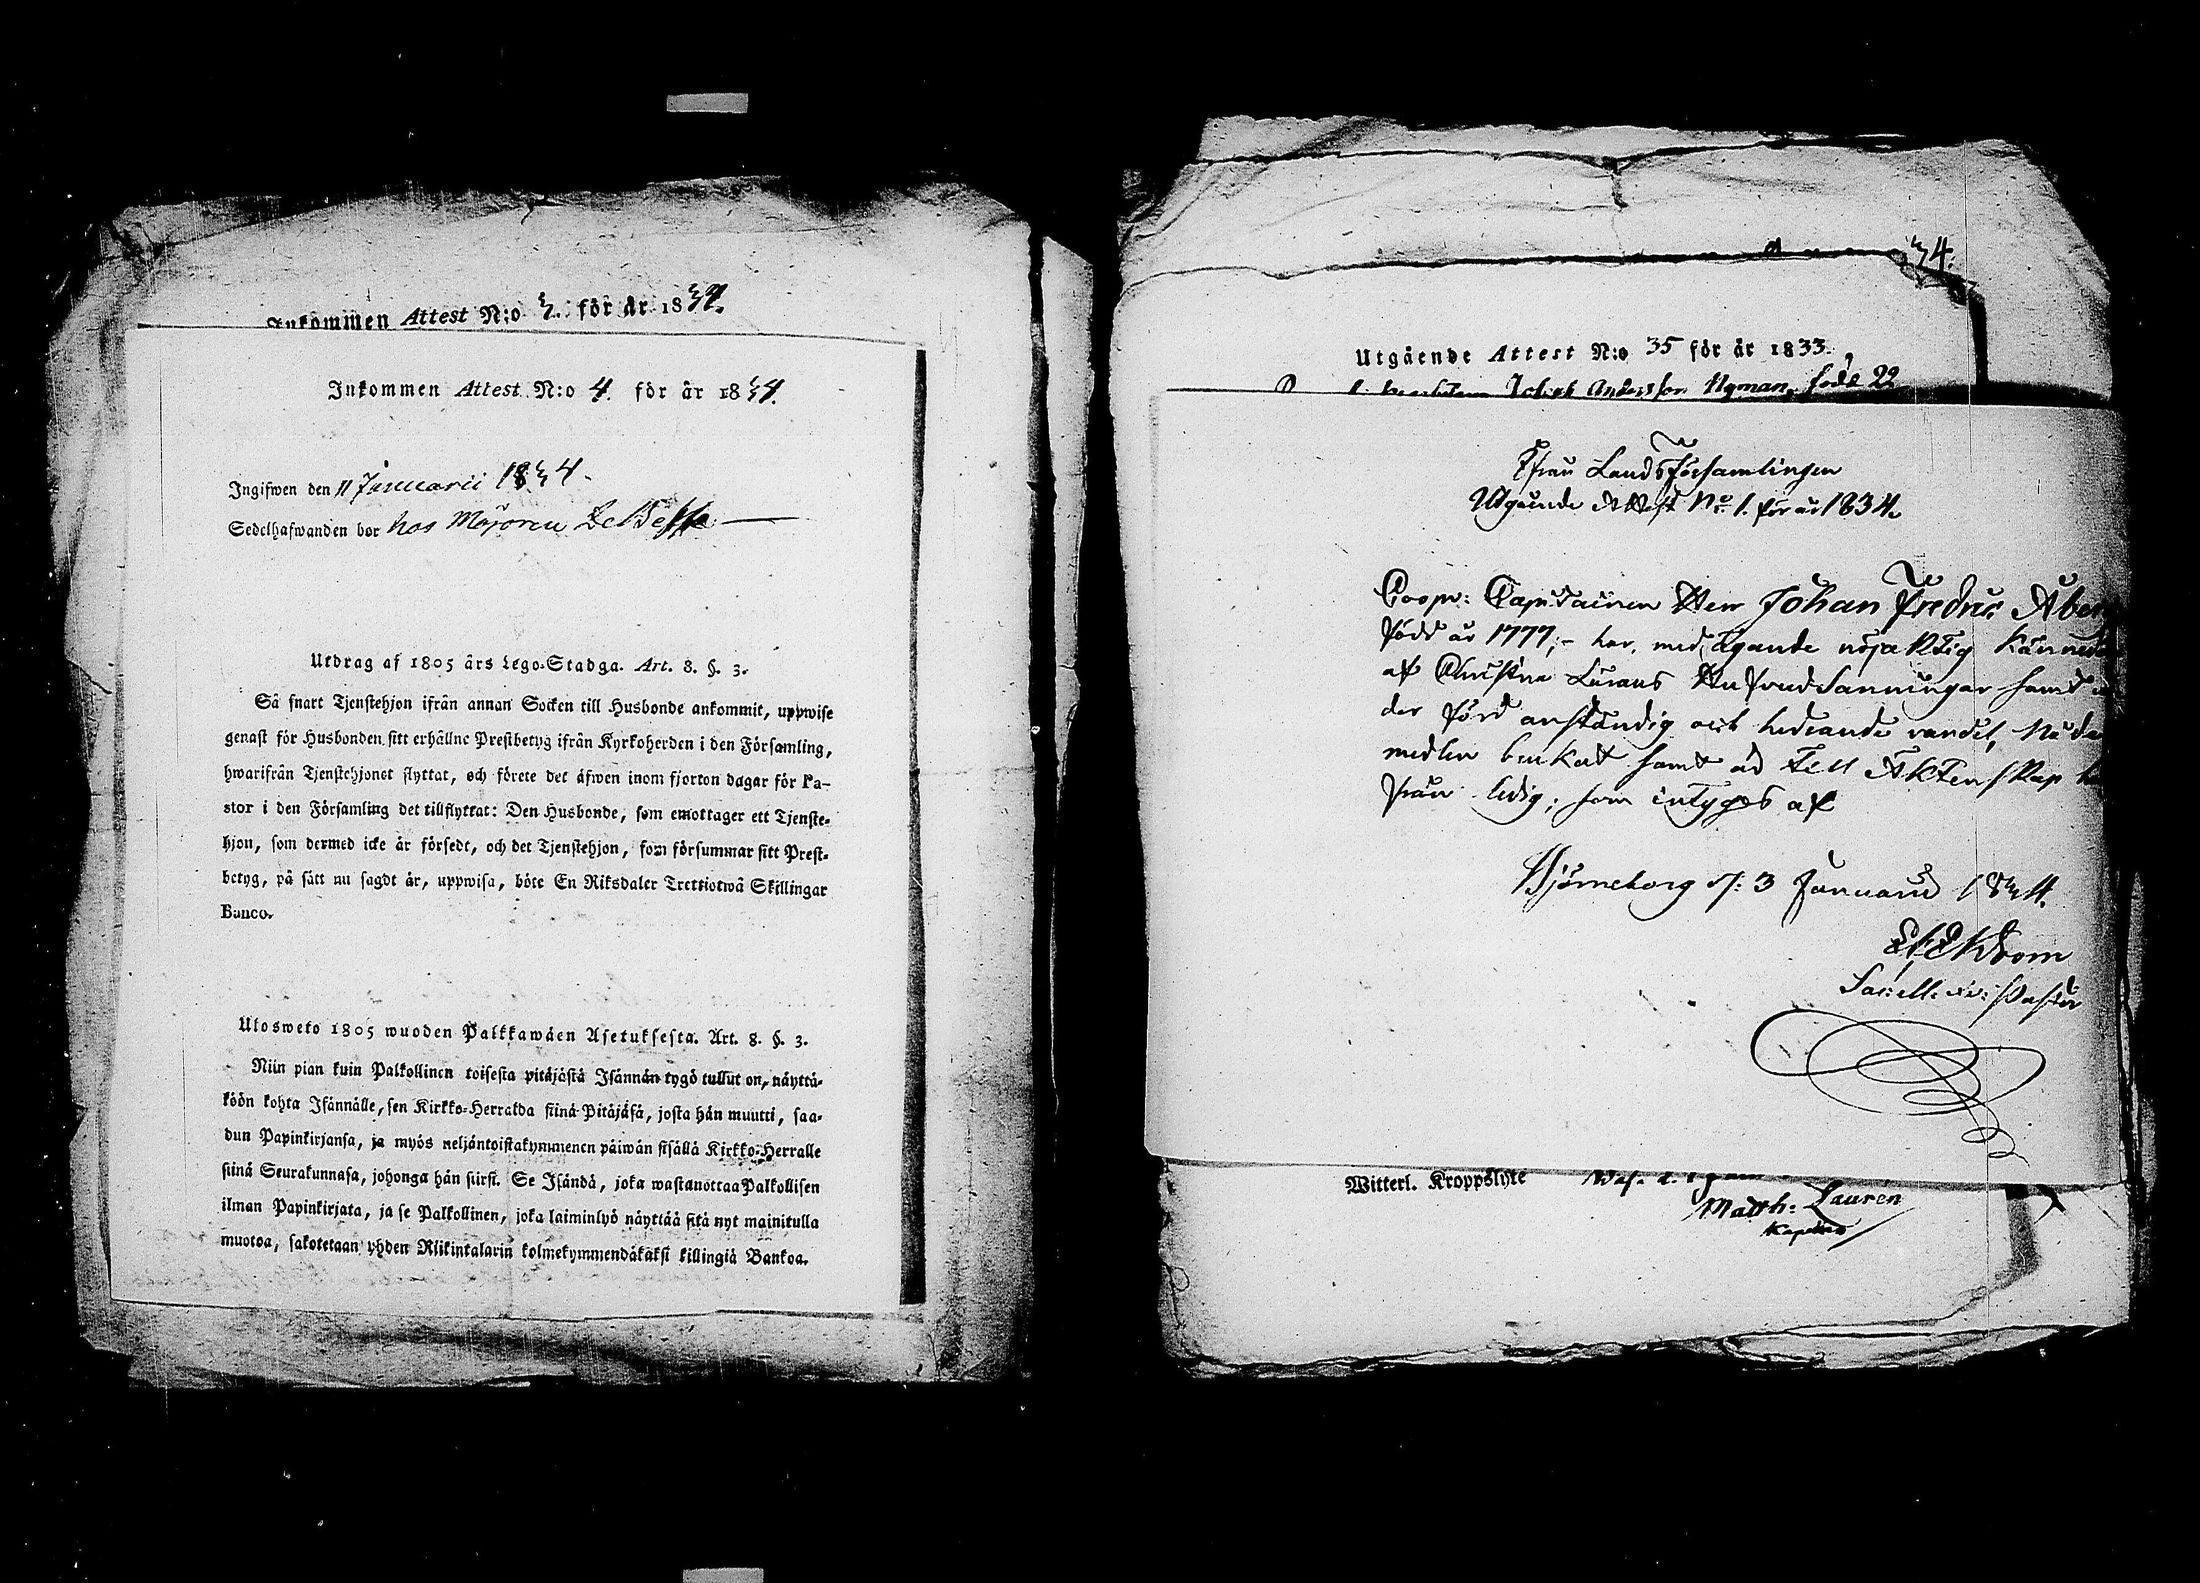 Inkommen Attest N:o 3. för år 1834.
Inkommen Attest N:o 4. för år 1834.
Ingifwen den 11 Januarii 1834.
Sedelhafwanden bor hos Majoren De Besse
Utdrag af 1805 års Lego-Stadga. Art. 8. §. 3.
Så snart Tjenstehjon ifrån annan Socken till Husbonde ankommit, uppwise
genast för Husbonden sitt erhållne Prestbetyg ifrån Kyrkoherden i den Församling,
hwarifrån Tjenstehjonet flyttat, och förete det äfwen inom fjorton dagar för Pa-
stor i den Församling det tillflyttat: Den Husbonde, som emottager ett Tjenste-
hjon, som dermed icke är försedt, och det Tjenstehjon, som försummar sitt Prest-
betyg, på sätt nu sagdt är, uppwisa, böte En Riksdaler Trettiotwå Skillingar
Banco.
Ulosweto 1805 wuoden Palkkawäen Asetuksesta. Art. 8. §. 3.
Niin pian kuin Palkollinen toisesta pitäjästä Isännän tygö tullut on, näyttä-
köön kohta Isännälle, sen Kirkko-Herralda siinä Pitäjäsä, josta hän muutti, saa-
dun Papinkirjansa, ja myös neljäntoistakymmenen päiwän sisällä Kirkko-Herralle
siinä Seurakunnasa, johonga hän siirsi. Se Isändä, joka wastanottaa Palkollisen
ilman Papinkirjata, ja se Palkollinen, joka laiminlyö näyttää sitä nyt mainitulla
muotoa, sakotetaan yhden Riikintalarin kolmekymmendäkaksi killingiä Bankoa.
34.
Utgående Attest N:o 35 för år 1833.
Johan Andersson Nyman, född 22
Ifrån Landsförsamlingen
Utgående Attest No 1. för år 1834.
Coopv: Capitainen Herr Johan Fredric Åber
född år 1777, har, med ägande nöjaktig känned
af Christna Lärans Hufvudsanningar samt
der förd anständig och hedrande vandel, Nåde
medlen brukat samt är till Äktenskap h
från ledig; som intygas af
Björneborg d: 3 Januarii 1834.
Ekström
Past:
Witterl. Kroppslyte
Matth: Laurén
Kapellan